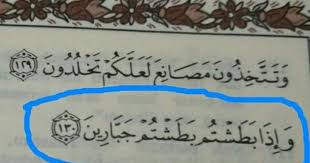 وَتَتَّخِذُونَ مَصَانِعَ لَعَلَّكُمْ تَخْلُدُونَ ١٢٩
وَإِذَا بَطَشْتُم بَطَشْتُمْ جَبَّارِينَ ١٣٠